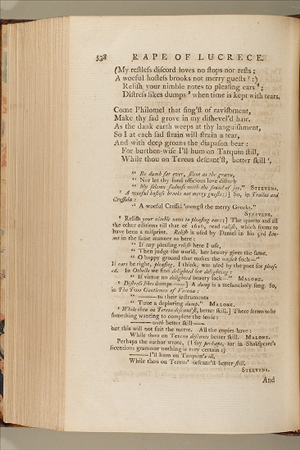 538 RAPE OF LUCRECE.
(My reſtleſs diſcord loves no ſtops nor reſts;
A woeful hoſteſs brooks not merry gueſts:)
Reliſh your nimble notes to pleaſing ears;
Diſtreſs likes dumps when time is kept with tears.
Come Philomel that ſing'ſt of raviſhment,
Make thy ſad grove in my diſhevel'd hair.
As the dank earth weeps at thy languiſhment,
So I at each ſad ſtrain will ſtrain a tear,
And with deep groans the diapaſon bear:
For burthen-wiſe I'll hum on Tarquin ſtill,
While thou on Tereus deſcant'ſt, better ſkill.
" Be dumb for ever, ſilent as the grave,
" Nor let thy fond officious love diſturb
" My ſolemn ſadneſs with the ſound of joy." STEEVENS.
A woeful hoſteſs brooks not merry gueſts:] So, in Troilus and
Creſſida:
" A woeful Creſſid 'mongſt the merry Greeks."
STEEVENS.
Reliſh your nimble notes to pleaſing ears;] The quarto and all
the other editions till that of 1616, read raliſh, which ſeems to
have been a miſprint. Reliſh is uſed by Daniel in his 53d Son-
net in the ſame manner as here:
" If any pleaſing reliſh here I uſe,
" Then judge the world, her beauty gives the ſame.
" O happy ground that makes the muſick ſuch—"
If ears be right, pleaſing, I think, was uſed by the poet for pleaſ-
ed. In Othello we find delighted for delighting:
" If virtue no delighted beauty lack—." MALONE.
Diſtreſs likes dumps——] A dump is a melancholy ſong. So,
in The Two Gentlemen of Verona:
" ——— to their inſtruments
" Tune a deploring dump." MALONE.
While thou on Tereus deſcant'ſt, better ſkill.] There ſeems to be
ſomething wanting to complete the ſenſe:
———with better ſkill—
but this will not ſuit the metre. All the copies have:
While thou on Tereus deſcants better ſkill. MALONE.
Perhaps the author wrote, (I ſay perhaps, for in Shakſpeare's
licentious grammar nothing is very certain:)
———I'll hum on Tarquin's ill,
While thou on Tereus' deſcant'ſt better ſkill.
STEEVENS.
And